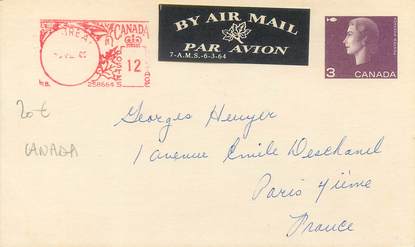 MONTREAL
CANADA
12
258664
BY AIR MAIL
PAR AVION
7-A.M.S.-6-3-64
3
CANADA
20€
CANADA
Georges Heuyer
1 avenue Emile Deschanel
Paris 7ième
France